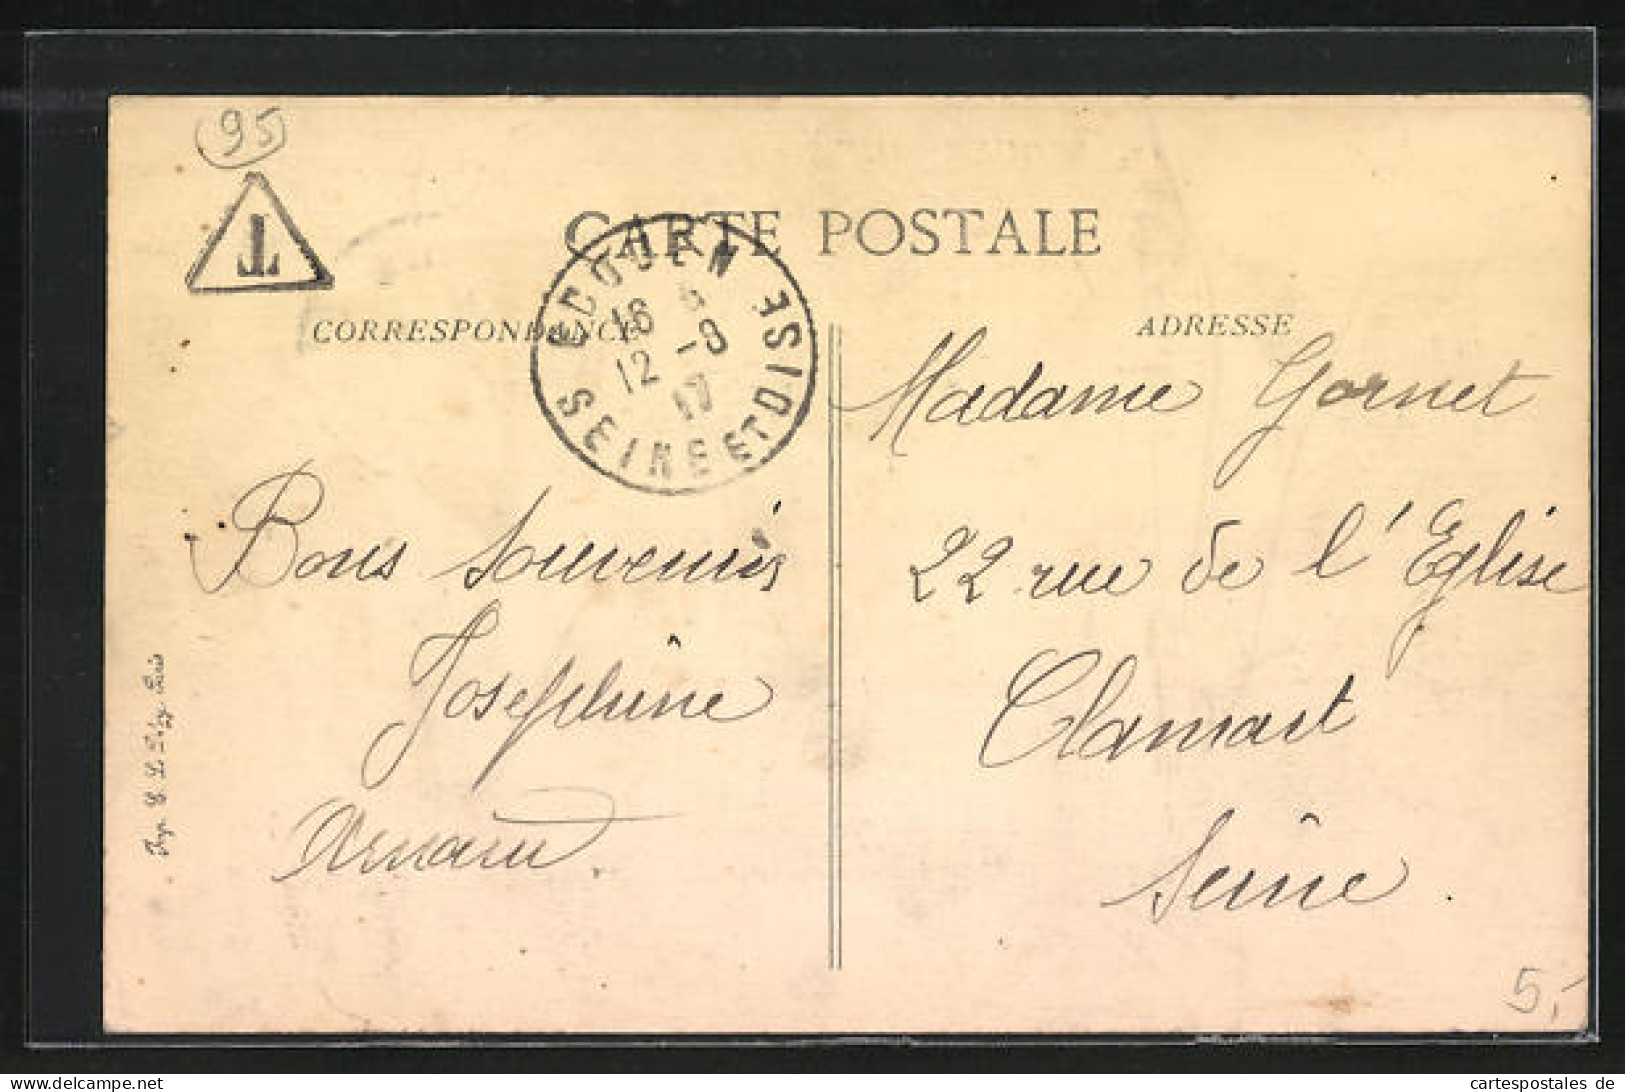 95
T
CARTE POSTALE
ECOUEN
16
12 -9
17
SEINE ET OISE
CORRESPONDANCE
ADRESSE
Madame Gornet
22 rue de l'Eglise
Clamart
Seine.
Bons souvenirs
Josephine
Arnaud.
Paris
5,-
cartespostales de